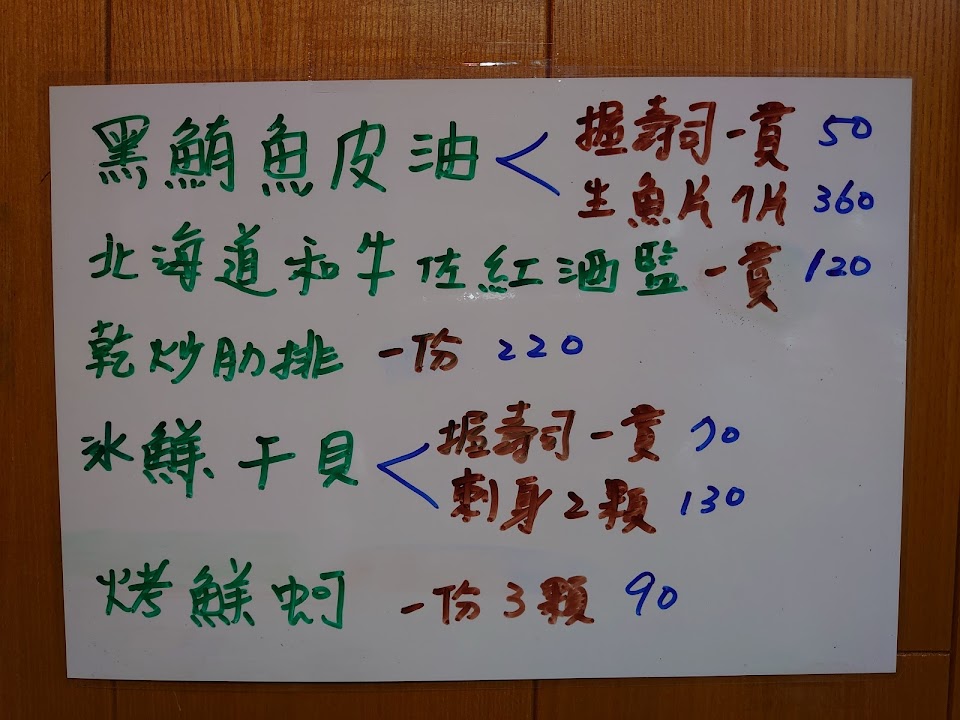 黑鮪魚皮油 握壽司一貫 50
生魚片7片 360
北海道和牛佐紅酒監 一貫 120
乾炒肋排 一份 220
氷鮮干貝 握壽司一貫 70
刺身2顆 130
烤鮮蚵 一份3顆 90